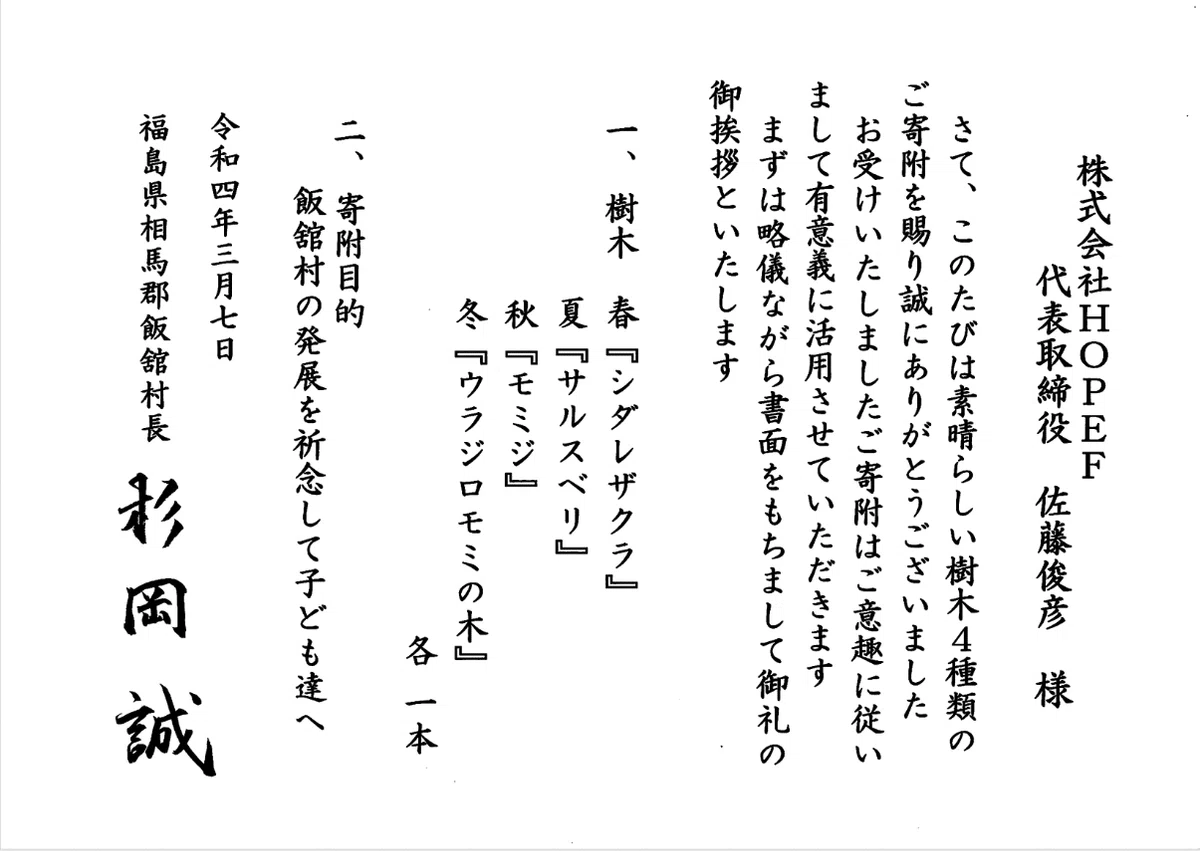 株式会社HOPEF
代表取締役　佐藤俊彦　様
さて、このたびは素晴らしい樹木4種類の
ご寄附を賜り誠にありがとうございました
お受けいたしましたご寄附はご意趣に従い
まして有意義に活用させていただきます
まずは略儀ながら書面をもちまして御礼の
御挨拶といたします
一、樹木　春『シダレザクラ』
夏『サルスベリ』
秋『モミジ』
冬『ウラジロモミの木』
各　一本
二、寄附目的
飯舘村の発展を祈念して子ども達へ
令和四年三月七日
福島県相馬郡飯舘村長　杉岡誠